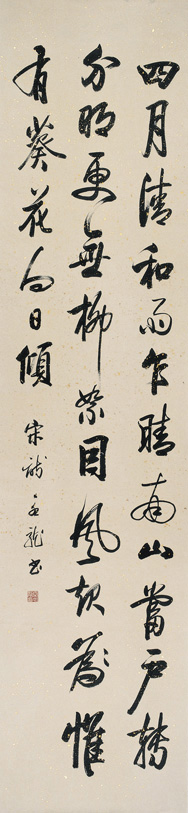 四月清和雨乍晴南山當戶轉
分明更無柳絮因風起惟
有葵花向日傾
宋詩龍書